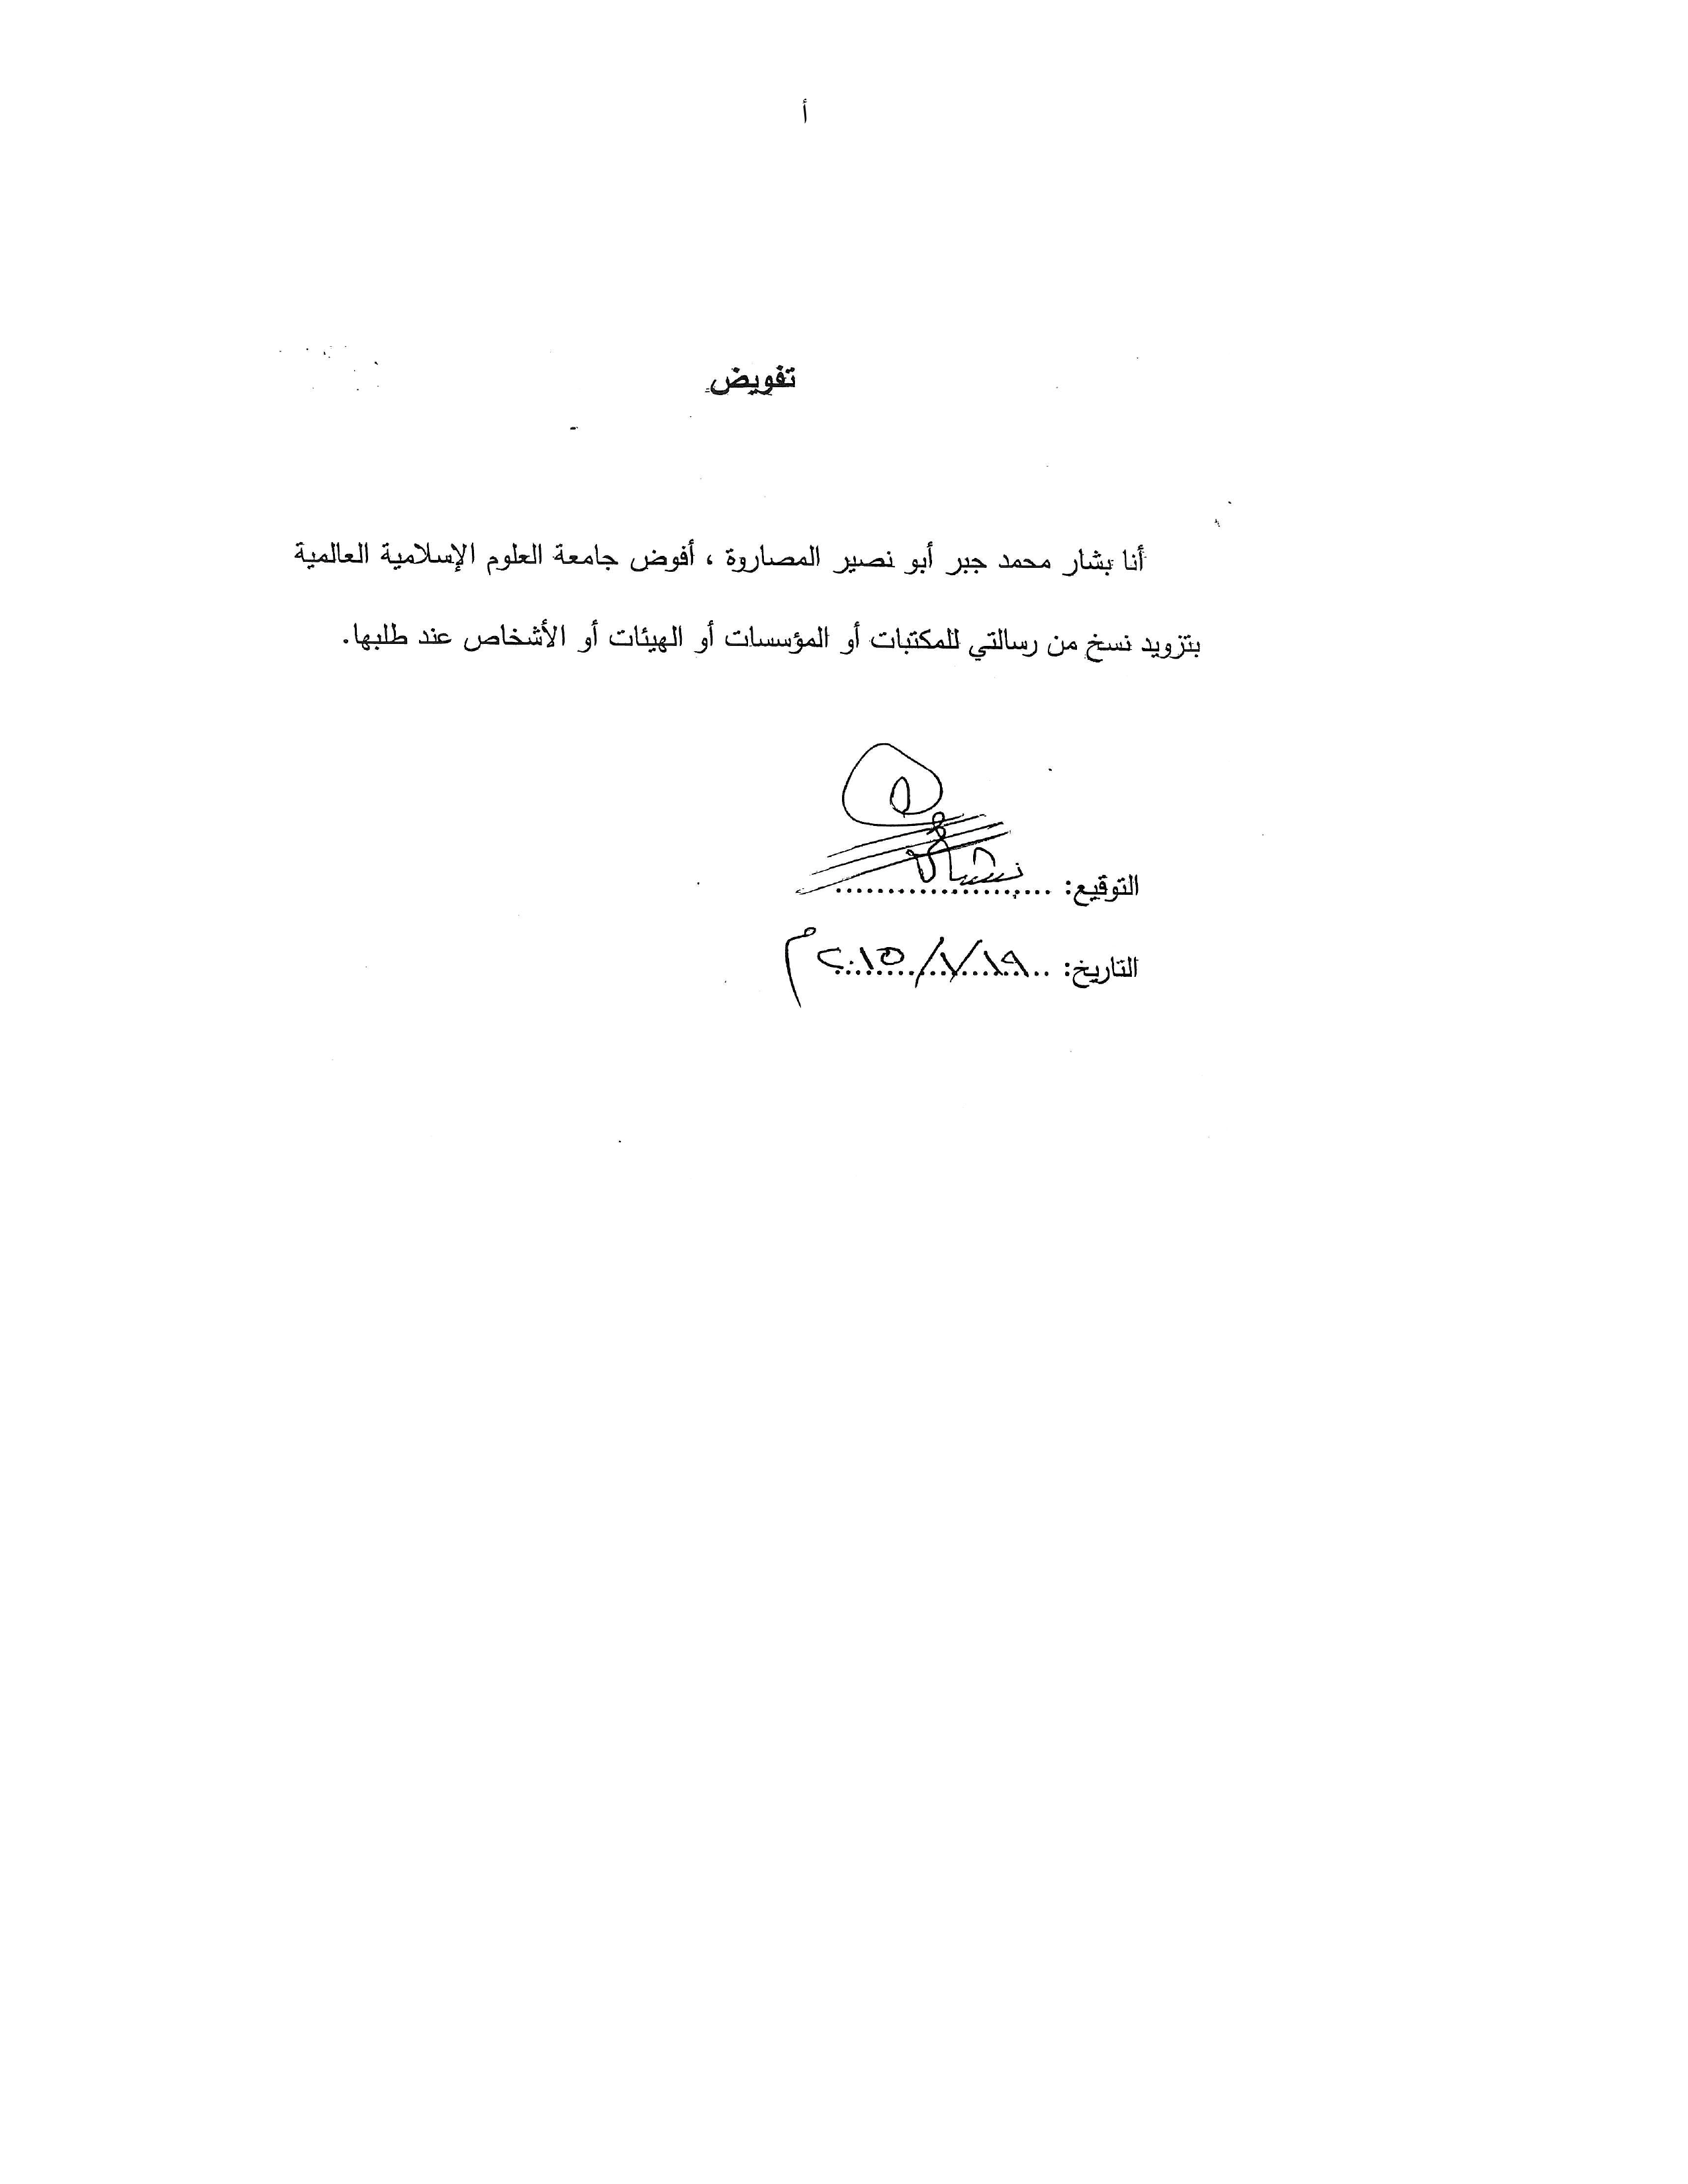 أ
تفويض
أنا بشار محمد جبر أبو نصير المصاروة ، أفوض جامعة العلوم الإسلامية العالمية
بتزويد نسخ من رسالتي للمكتبات أو المؤسسات أو الهيئات أو الأشخاص عند طلبها.
التوقيع: ......................
التاريخ: ١٩/١/٢٠١٥م